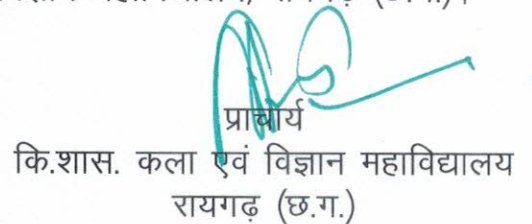 प्राचार्य
कि.शास. कला एवं विज्ञान महाविद्यालय
रायगढ़ (छ.ग.)